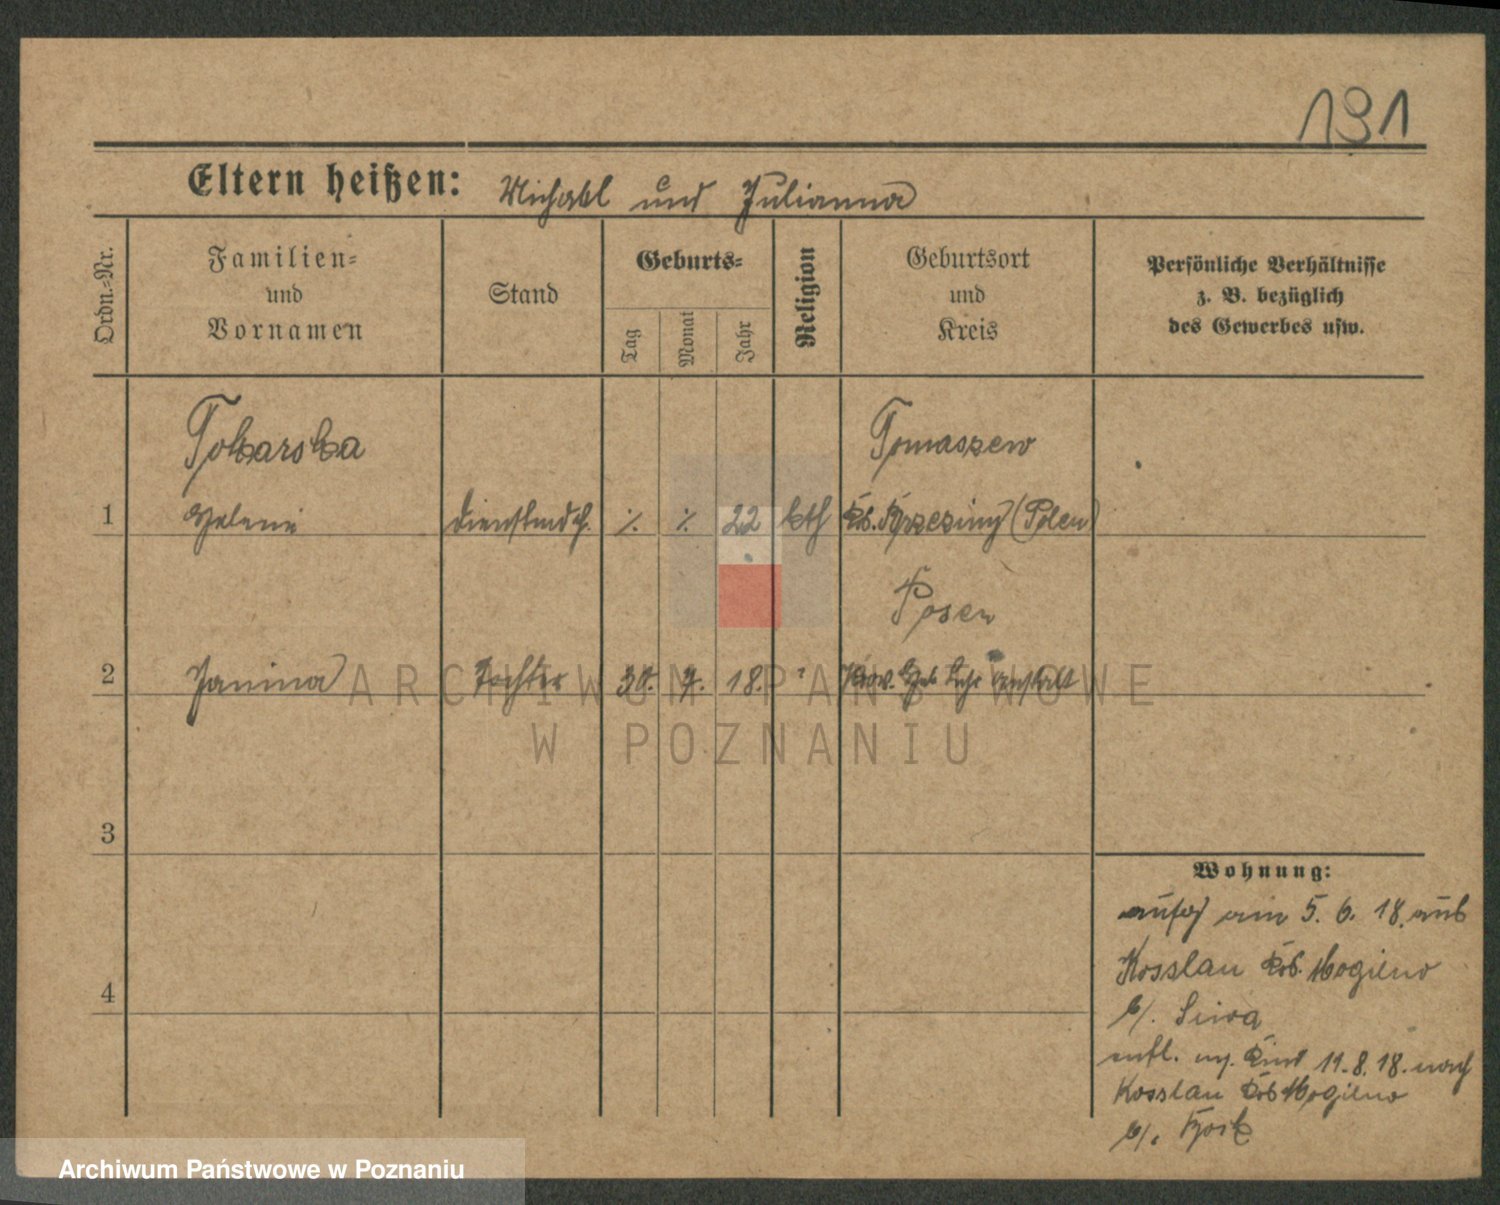 191
Eltern heißen: Michael und Julianna
Ordn.-Nr.
Familien-
und
Vornamen
Stand
Geburts-
Tag
Monat
Jahr
Religion
Geburtsort
und
Kreis
Persönliche Verhältnisse
z. B. bezüglich
des Gewerbes usw.
Tokarska Tomaszew
1 Helene Dienstmdch. ٪ ٪ 22 kth Krs. (Polen)
Posen
2 Janina Tochter 30. 7. 18. " Prov. Heb. Lehr anstalt
3
4
Wohnung:
aufg am 5. 6. 18. aus
Kosslau Krs. Mogilno
b/.
entl. m. Kind 11. 8. 18. nach
Kosslau Krs Mogilno
b/.
ARCHIWUM PAŃSTWOWE
W POZNANIU
Archiwum Państwowe w Poznaniu